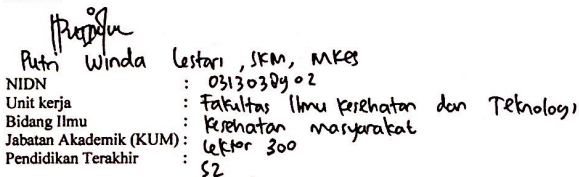 Putri Winda Lestari, SKM, MKes
NIDN : 0313038902
Unit kerja : Fakultas Ilmu Kesehatan dan Teknologi
Bidang Ilmu : Kesehatan masyarakat
Jabatan Akademik (KUM) : Lektor 300
Pendidikan Terakhir : S2